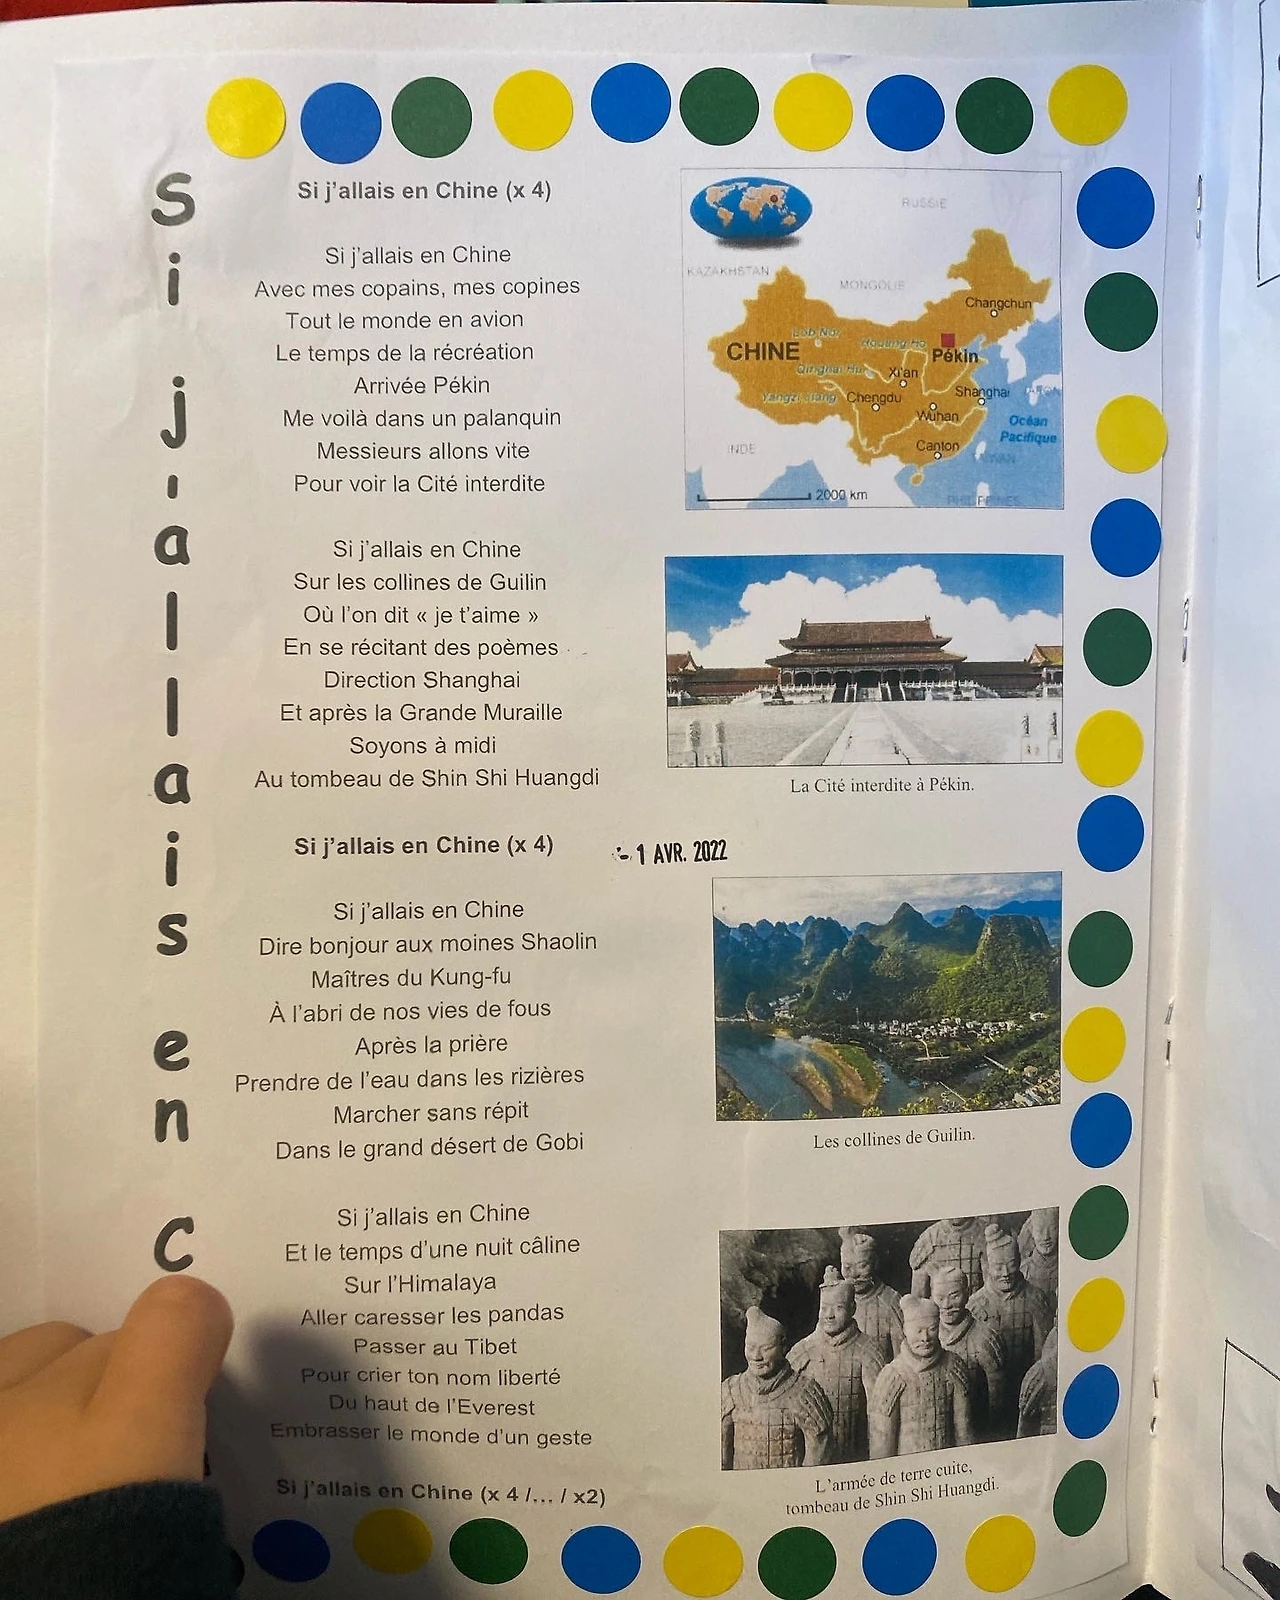 Si j'allais en C
Si j'allais en Chine (x 4)
Si j'allais en Chine
Avec mes copains, mes copines
Tout le monde en avion
Le temps de la récréation
Arrivée Pékin
Me voilà dans un palanquin
Messieurs allons vite
Pour voir la Cité interdite
Si j'allais en Chine
Sur les collines de Guilin
Où l'on dit « je t'aime »
En se récitant des poèmes
Direction Shanghai
Et après la Grande Muraille
Soyons à midi
Au tombeau de Shin Shi Huangdi
Si j'allais en Chine (x 4)
- 1 AVR. 2022
Si j'allais en Chine
Dire bonjour aux moines Shaolin
Maîtres du Kung-fu
À l'abri de nos vies de fous
Après la prière
Prendre de l'eau dans les rizières
Marcher sans répit
Dans le grand désert de Gobi
Si j'allais en Chine
Et le temps d'une nuit câline
Sur l'Himalaya
Aller caresser les pandas
Passer au Tibet
Pour crier ton nom liberté
Du haut de l'Everest
Embrasser le monde d'un geste
Si j'allais en Chine (x 4 /... / x2)
RUSSIE
KAZAKHSTAN
MONGOLIE
Changchun
Lob Nor
Houang Ho
CHINE
Pékin
Qinghai Hu
Xi'an
Yangzi Jiang
Chengdu
Shanghai
JAPON
Wuhan
Océan
Pacifique
INDE
Canton
TAIWAN
2000 km
PHILIPPINES
La Cité interdite à Pékin.
Les collines de Guilin.
L'armée de terre cuite,
tombeau de Shin Shi Huangdi.